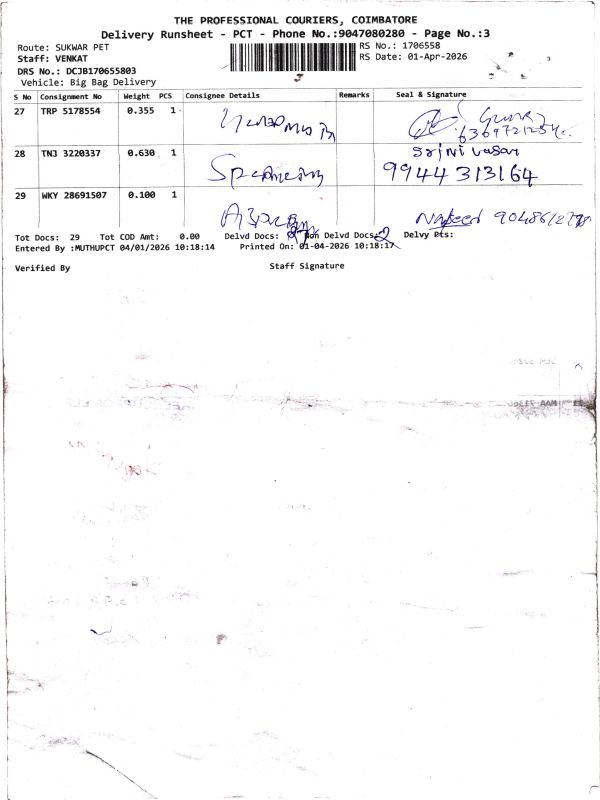 THE PROFESSIONAL COURIERS, COIMBATORE
Delivery Runsheet - PCT - Phone No.:9047080280 - Page No.:3
Route: SUKWAR PET
RS No.: 1706558
Staff: VENKAT
RS Date: 01-Apr-2026
DRS No.: DCJB170655803
Vehicle: Big Bag Delivery
S No Consignment No Weight PCS Consignee Details Remarks Seal & Signature
27 TRP 5178554 0.355 1
28 TNJ 3220337 0.630 1 Srinivasan
9944313164
29 WKY 28691507 0.100 1
Nafeed
Tot Docs: 29 Tot COD Amt: 0.00 Delvd Docs: Non Delvd Docs: 2 Delvy Pts:
Entered By :MUTHUPCT 04/01/2026 10:18:14 Printed On: 01-04-2026 10:18:17
Verified By Staff Signature